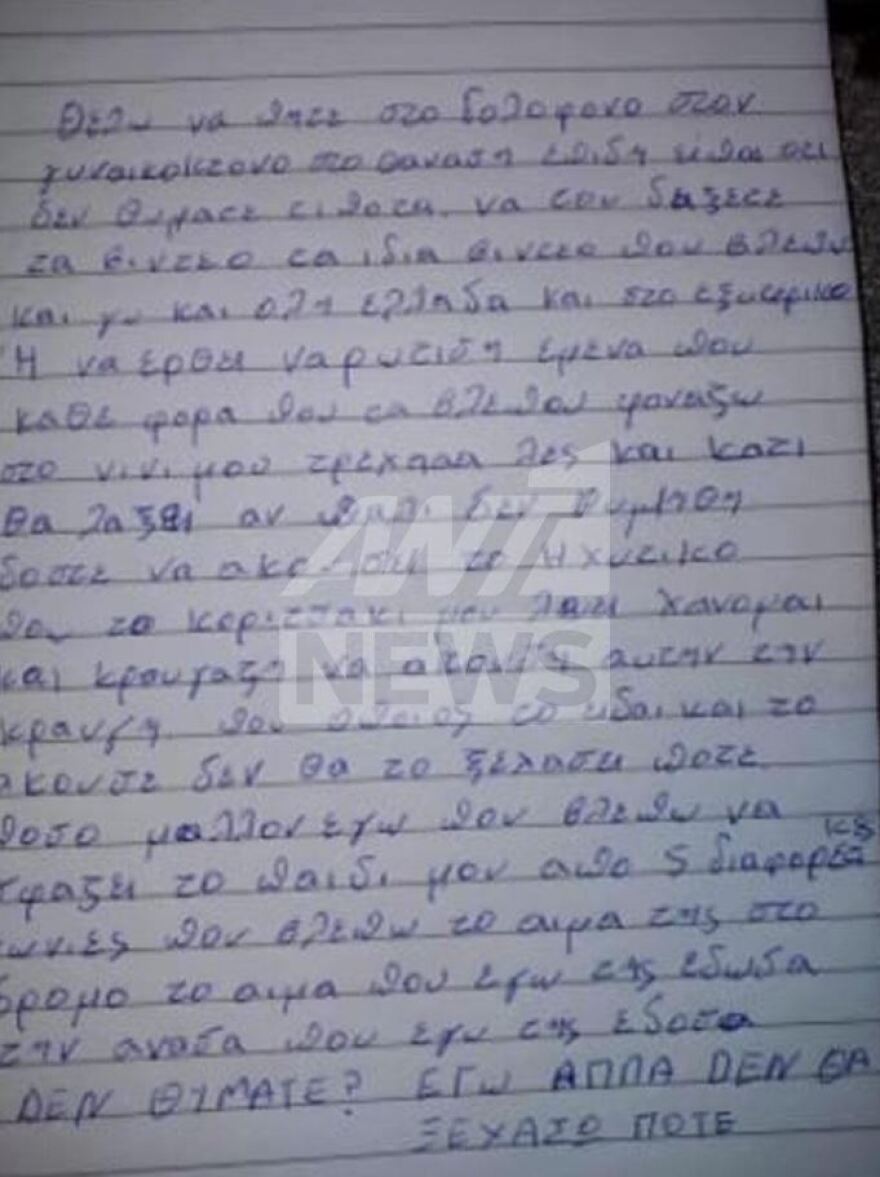 Θελω να πητε στο δολοφονο στον
γυναικοκτονο στο θαναση επιδη ειπαι οτι
δεν θυμαστε τιποτα να του δειξετε
τα βιντεο τα ιδια βιντεο που βλεπω
και γω και ολη ελλαδα και στο εξωτερικο
Η να ερθει να ρωτιση εμενα που
καθε φορα που τα βλεπου φοναζω
στο νινι μου τρεχααα λες και κατι
θα λαξει αν παλι δεν θυμηθη
δοστε να ακουσει το Ηχυτικο
που το κοριτσακι μου λαει χανομαι
και κραυγαζη να ακουση αυτην την
κραυγη που οποιος το ειδαι και το
ακουσε δεν θα το ξεχασει ποτε
ποσο μαλλον εγω που βλεπω να
σφαζει το παιδι μου απο 5 διαφορετικες
γωνιες που βλεπω το αιμα της στο
δρομο το αιμα που εγω της εδωσα
την ανασα που εγω της εδοσα
ΔΕΝ ΘΥΜΑΤΕ? ΕΓΩ ΑΠΠΑ ΔΕΝ ΘΑ
ΞΕΧΑΣΩ ΠΟΤΕ
ANT1
NEWS